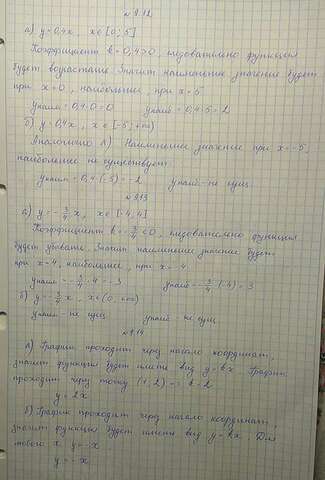 № 9.12
а) y=0,4x, x∈[0; 5]
Коэффициент k=0,4>0, следовательно функция
будет возрастать. Значит наименьшее значение будет
при x=0, наибольшее, при x=5
yнаим=0,4·0=0 yнаиб=0,4·5=2
б) y=0,4x, x∈[-5; +∞)
Аналогично А) Наименьшее значение при x=-5,
наибольшее не существует.
yнаим=0,4·(-5)=-2 yнаиб-не сущ.
№ 9.13
а) y=-3/4 x, x∈[-4,4]
Коэффициент k=-3/4<0, следовательно функция
будет убывать. Значит наименьшее значение будет
при x=4, наибольшее, при x=-4
yнаим=-3/4·4=-3 yнаиб=-3/4·(-4)=3
б) y=-3/4 x, x∈(0; +∞)
yнаим-не сущ yнаиб-не сущ
№ 9.14
А) График проходит через начало координат,
значит функция будет иметь вид y=kx График
проходит через точку (1,2) => k=2
y=2x
Б) График проходит через начало координат,
значит функция будет иметь вид y=kx. Для
любого x y=-x
y=-x